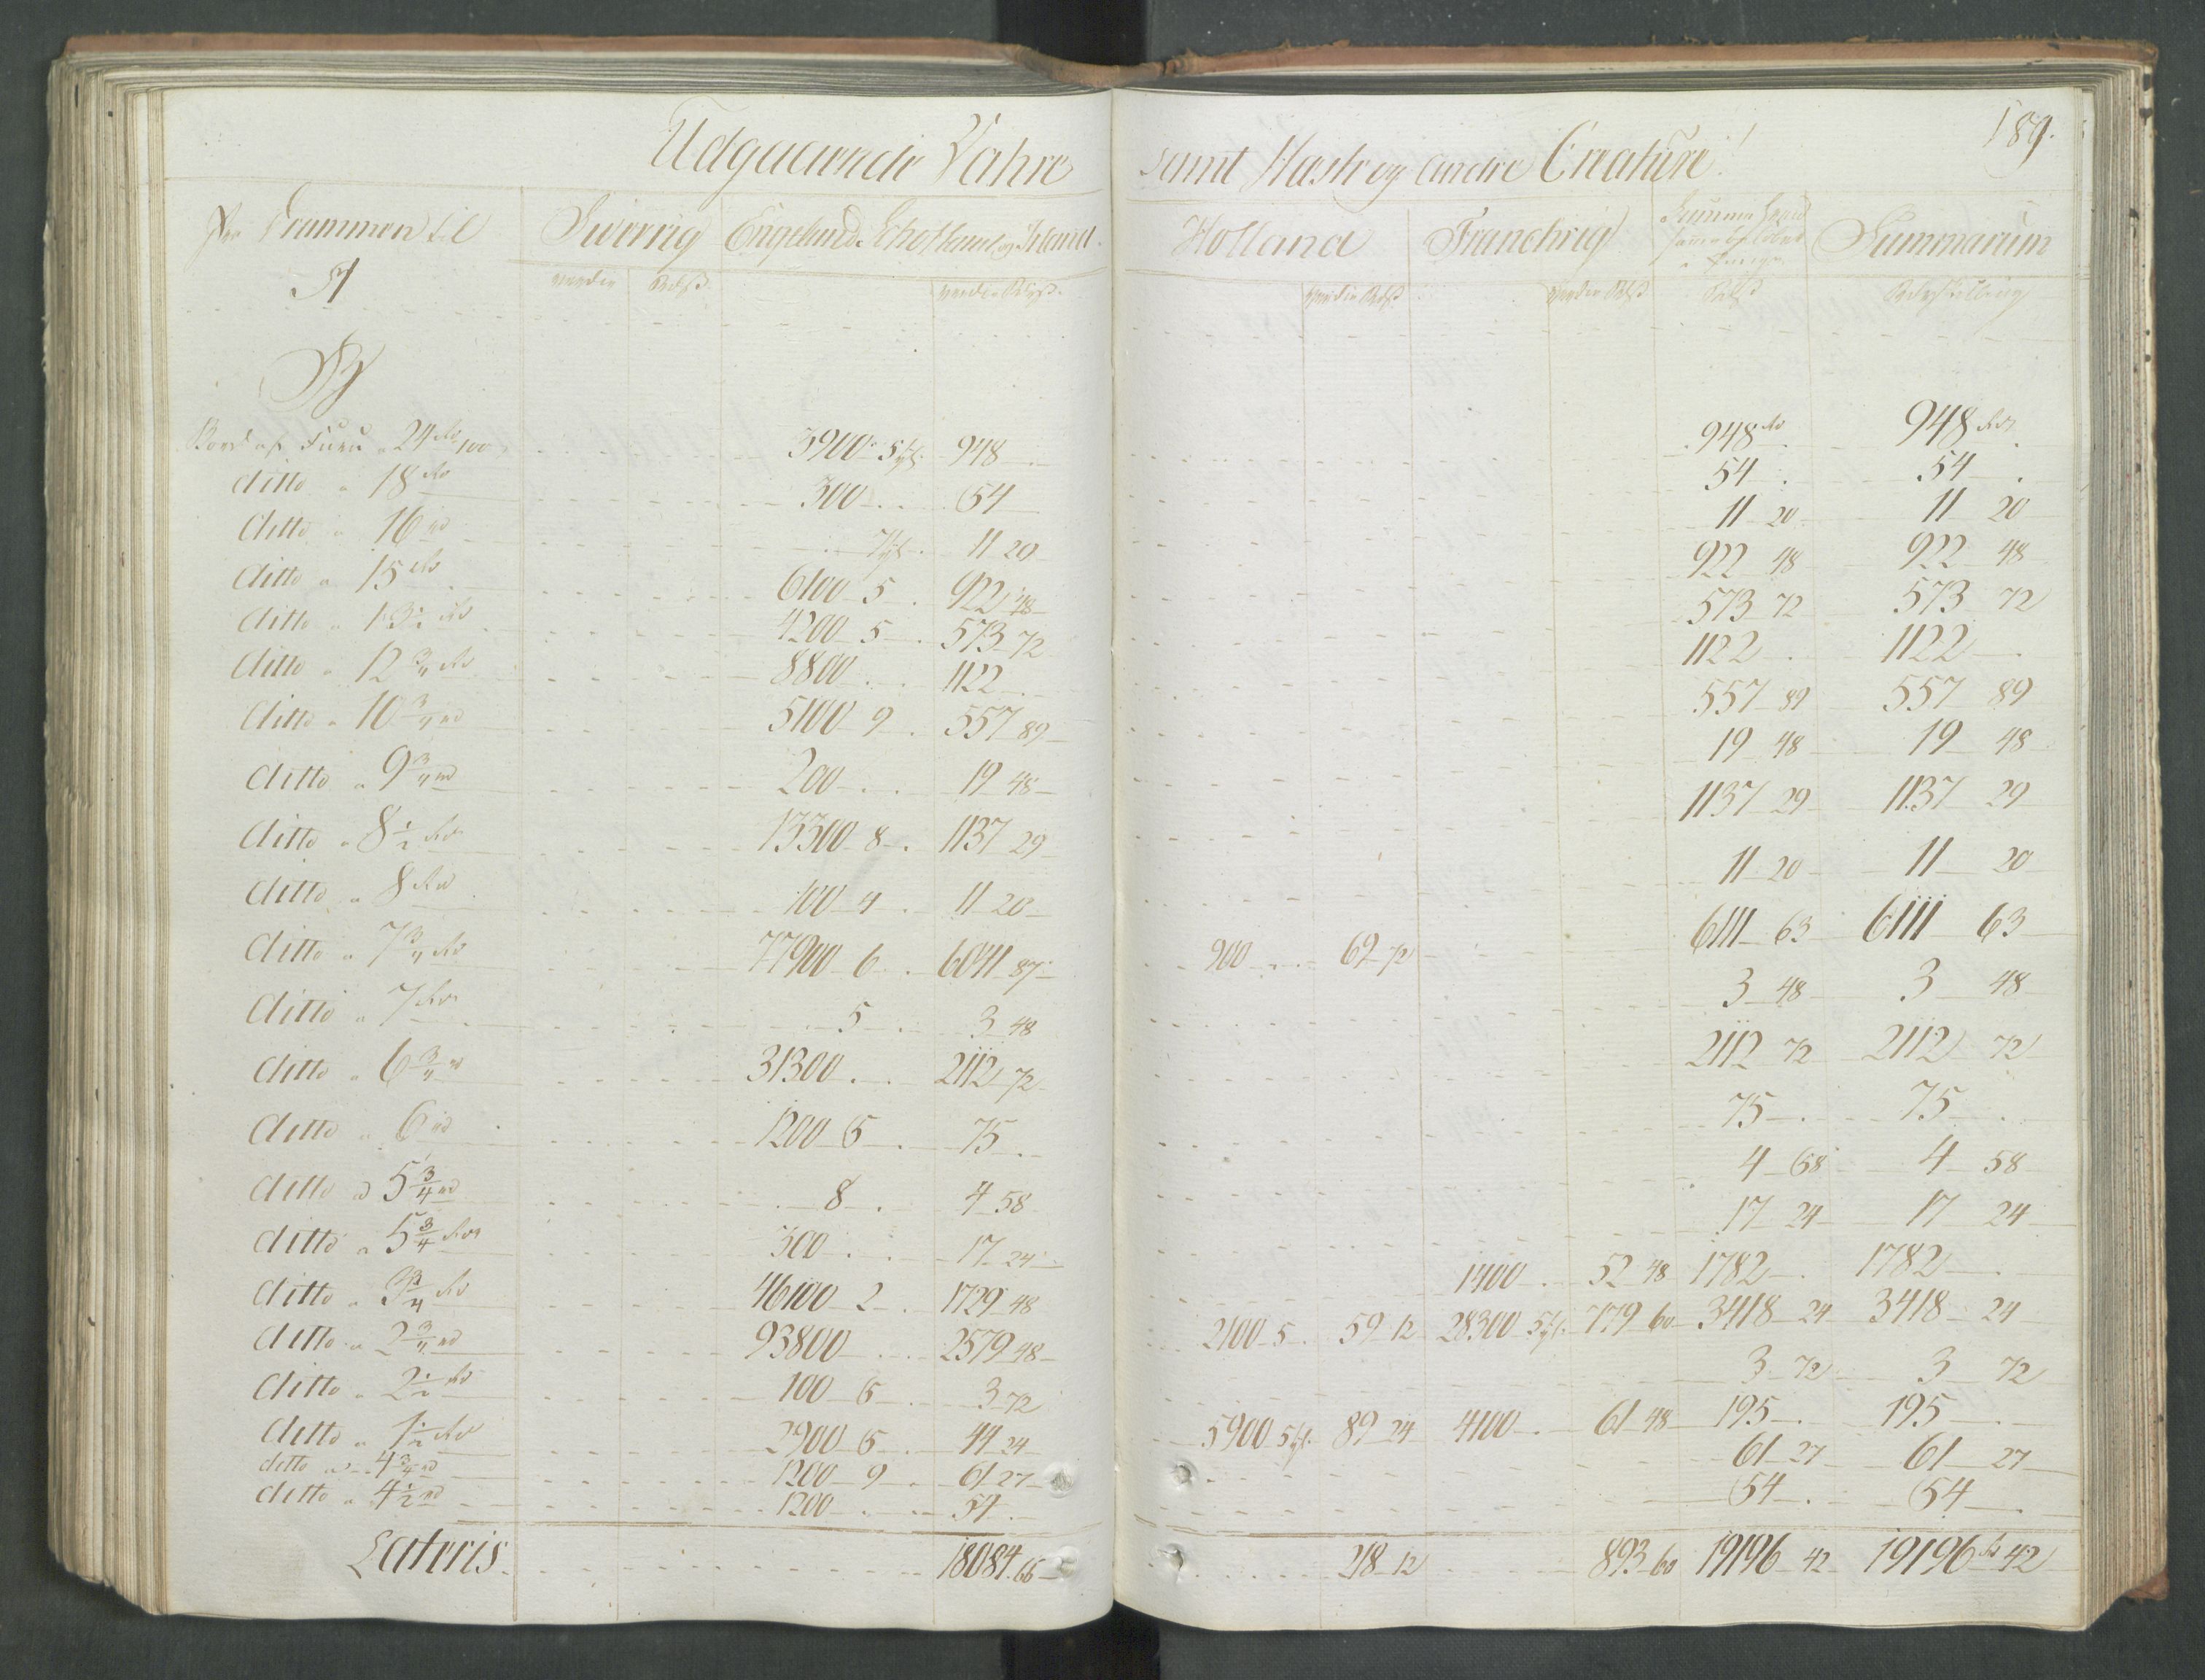 Udgaaende Vahre samt Heste og andre Creature! 189.
Drammen til Sverrig Engeland Schotland og Irland Holland Franchrig Summarum
A
B
Bord af Furu a 24 rd 100 3900 5 st 948 948 rd 948 rd
ditto a 18 rd 300 54 54 54
ditto a 16 rd 7 st 11 20 11 20 11 20
ditto a 15 rd 6100 5 922 48 922 48 922 48
ditto a 13 1/2 rd 4200 5 573 72 573 72 573 72
ditto a 12 3/4 rd 8800 1122 1122 1122
ditto a 10 3/4 rd 5100 9 557 89 557 89 557 89
ditto a 9 3/4 rd 200 19 48 19 48 19 48
ditto a 8 1/2 rd 13300 8 1137 29 1137 29 1137 29
ditto a 8 rd 100 4 11 20 11 20 11 20
ditto a 7 3/4 rd 77900 6 6041 87 900 69 72 6111 63 6111 63
ditto a 7 rd 5 3 48 3 48 3 48
ditto a 6 3/4 rd 31300 2112 72 2112 72 2112 72
ditto a 6 rd 1200 5 75 75 75
ditto a 5 3/4 rd 8 4 58 4 58 4 58
ditto a 5 3/4 rd 300 17 24 17 24 17 24
ditto a 3 3/4 rd 46100 2 1729 48 1400 52 48 1782 1782
ditto a 2 3/4 rd 93800 2579 48 2100 5 59 12 28300 5 st 779 60 3418 24 3418 24
ditto a 2 1/2 rd 100 5 3 72 3 72 3 72
ditto a 1 1/2 rd 2900 5 44 24 5900 5 st 89 24 4100 61 48 195 195
ditto a 4 3/4 rd 1200 9 61 27 61 27 61 27
ditto a 4 1/2 rd 1200 54 54 54
Lateris 18084 66 218 12 893 60 19196 42 19196 rd 42